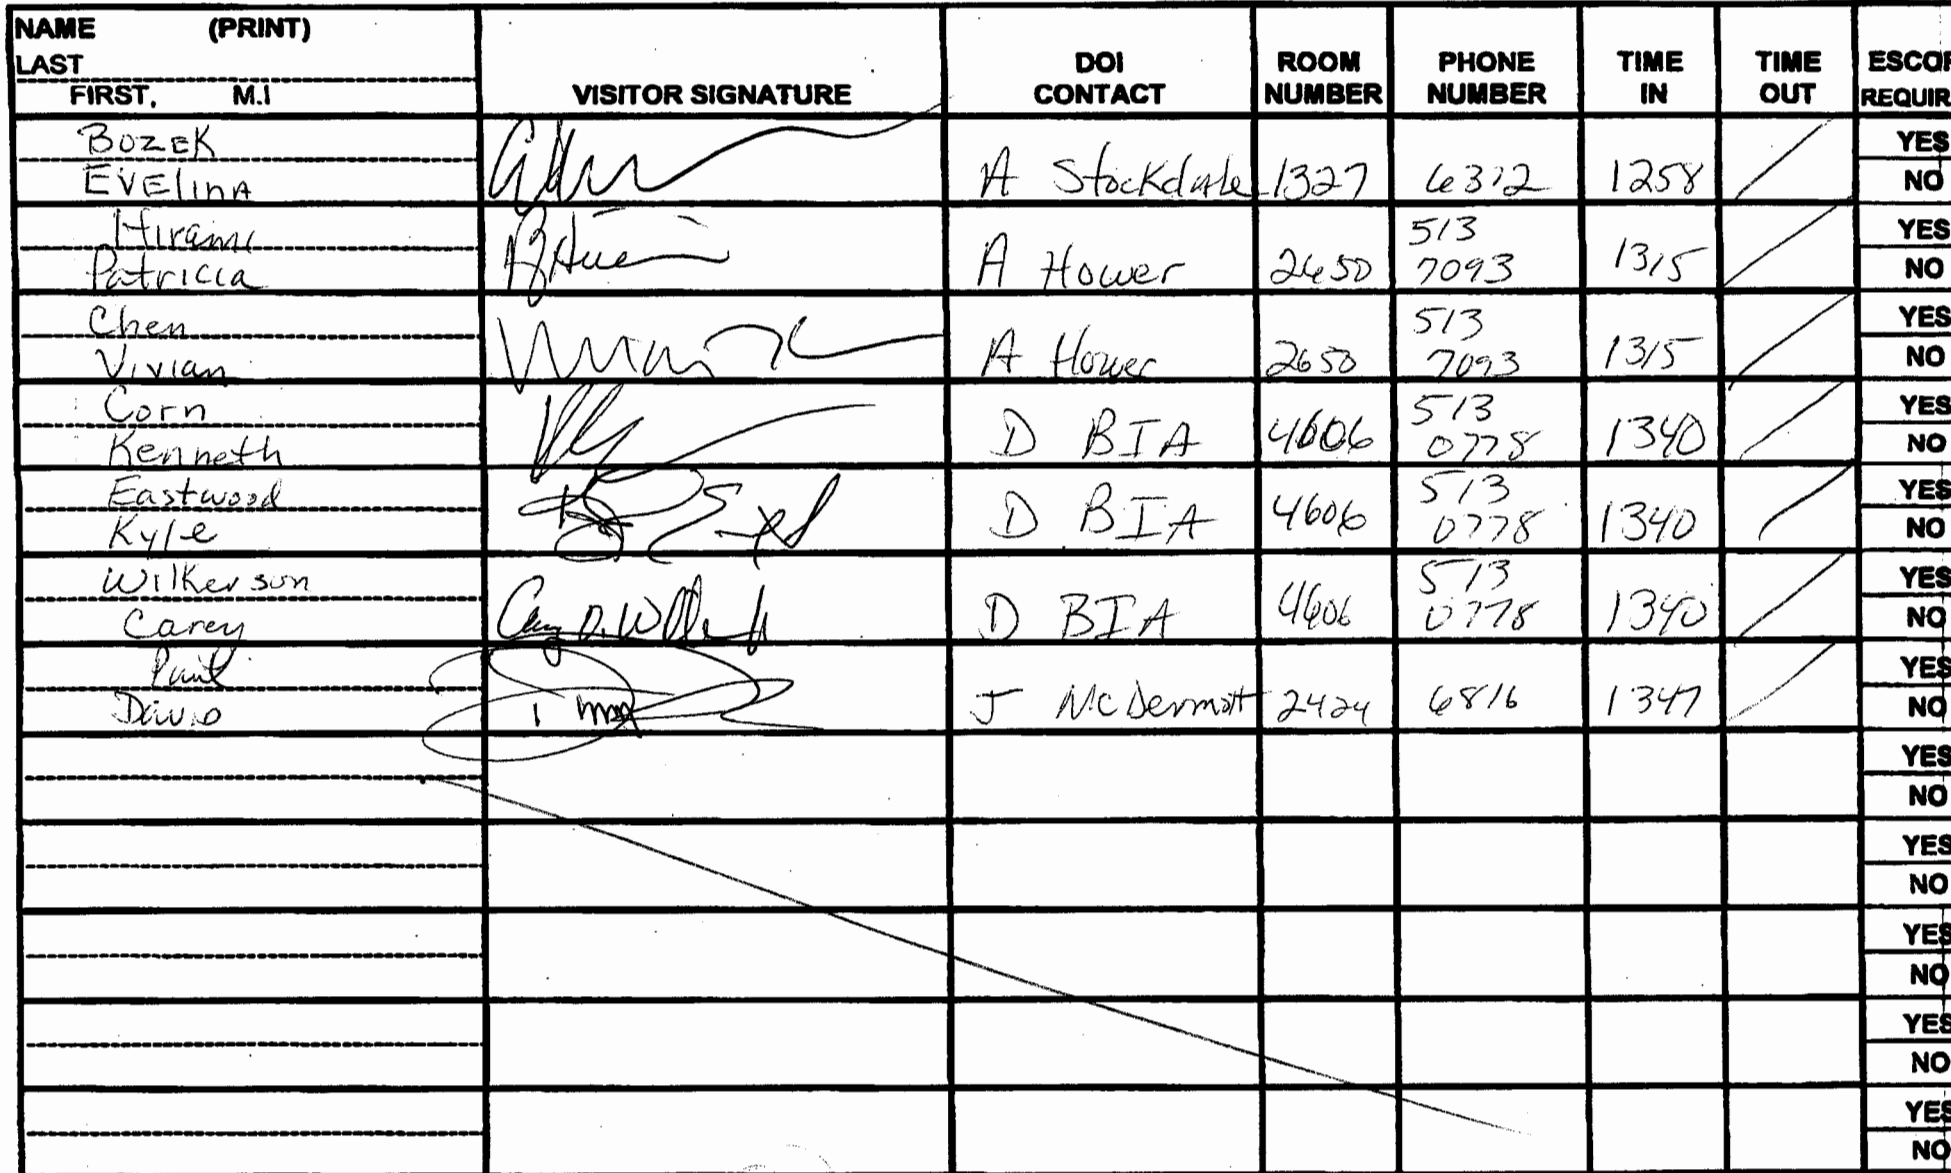 NAME (PRINT)
LAST
FIRST, M.I
VISITOR SIGNATURE
DOI CONTACT
ROOM NUMBER
PHONE NUMBER
TIME IN
TIME OUT
ESCOR
REQUIR
Bozek
Evelina A Stockdale 1327 6372 1258 YES NO
Hirami
Patricia A Hower 2650 513 7093 1315 YES NO
Chen
Vivian A Hower 2650 513 7093 1315 YES NO
Corn
Kenneth D BIA 4606 513 0778 1340 YES NO
Eastwood
Kyle D BIA 4606 513 0778 1340 YES NO
Wilkerson
Carey D BIA 4606 513 0778 1340 YES NO
Paul
David J McDermott 2424 6816 1347 YES NO
YES
NO
YES
NO
YES
NO
YES
NO
YES
NO